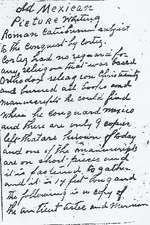 old Mexican
Picture Writing
Roman Catholicism subject
to the conquest by Cortez.
Cortez had no regard for
any religion that was based
Orthodox religion Christianity
and burned all books and
manuscripts he could find
when he conquered mexico
and there are only 9 copies
left that are in museum of today
and one of the manuscripts
are on short pieces and
it is fastened to gather
and it is 14 feet long and
the following is a copy of
the ancient aztec and Mexican